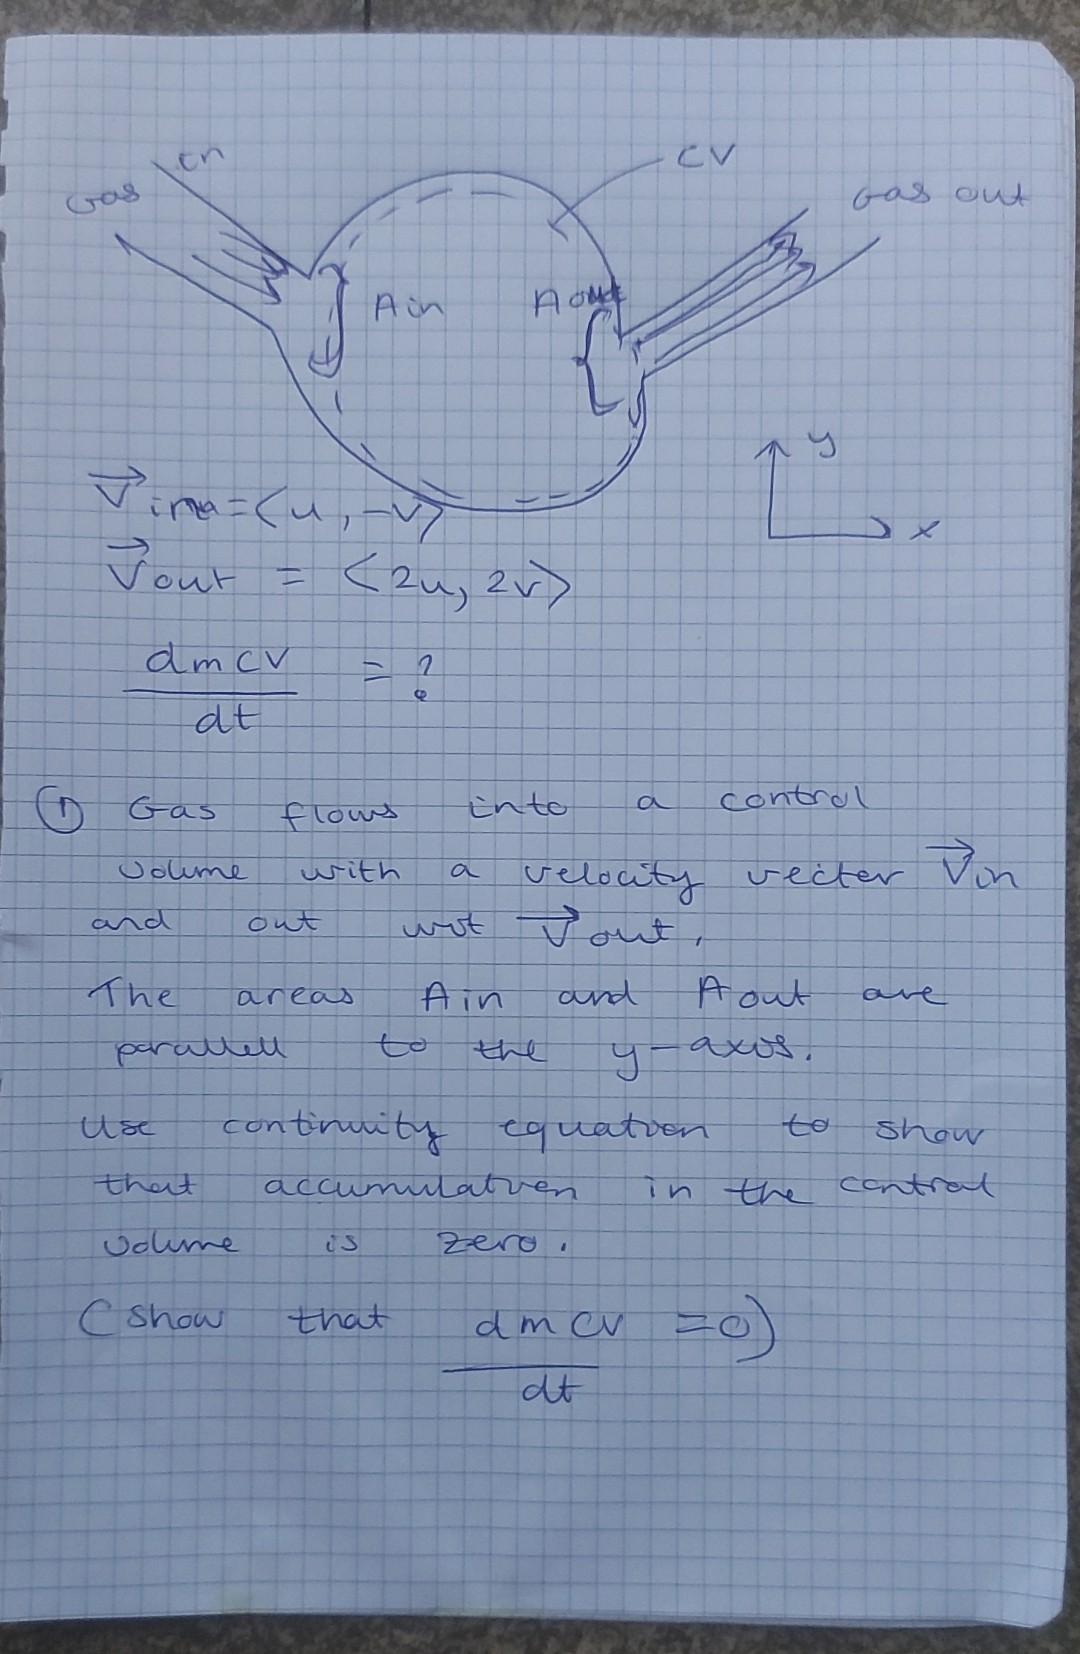 Gas in
CV
Gas out
Ain
Aout
y
x
V⃗in=<u,-v>
V⃗out = <2u, 2v>
dmcv/dt = ?
① Gas flows into a control
volume with a velocity vector V⃗in
and out wit V⃗out.
The areas Ain and Aout are
parallell to the y-axis.
Use continuity equation to show
that accumulation in the control
volume is zero.
(Show that dmcv/dt =0)